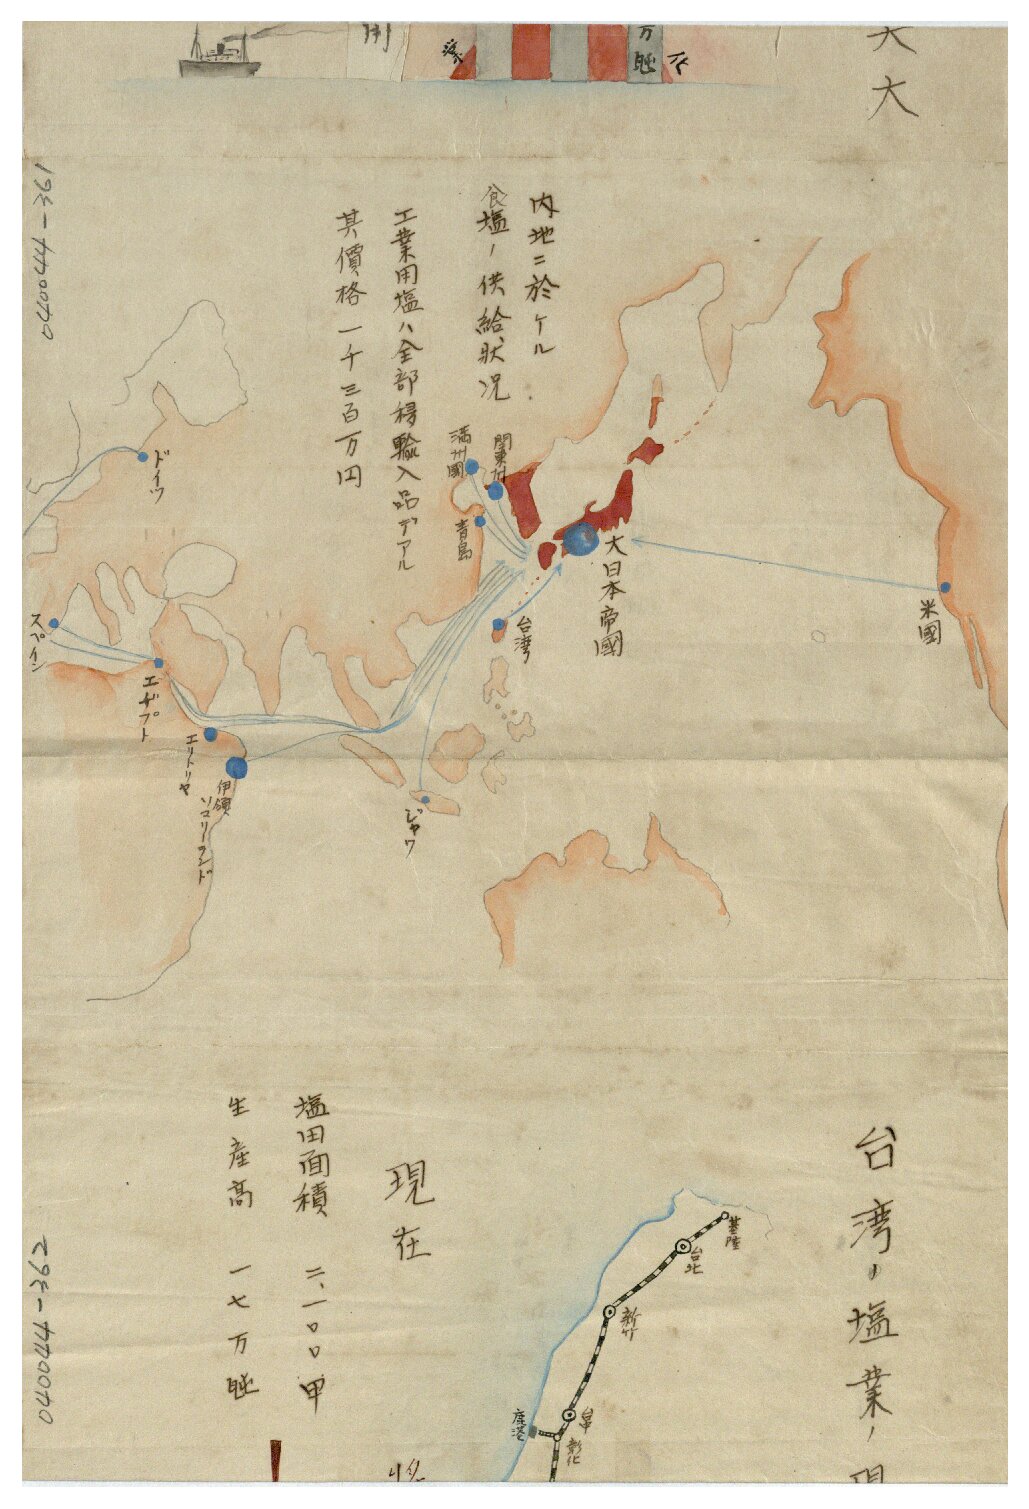 大
万
瓲
内地ニ於ケル
食塩ノ供給状況
工業用塩ハ全部移輸入品デアル
其價格一千三百万円
満州國
関東州
青島
大日本帝國
台湾
米國
ドイツ
スペイン
エヂプト
エリトリヤ
伊領
ソマリーランド
ジャワ
040044-361
台湾ノ塩業ノ現
現在
塩田面積 二、一〇〇甲
生産高 一七万瓲
基隆
台北
新竹
台中
彰化
鹿港
040044-362